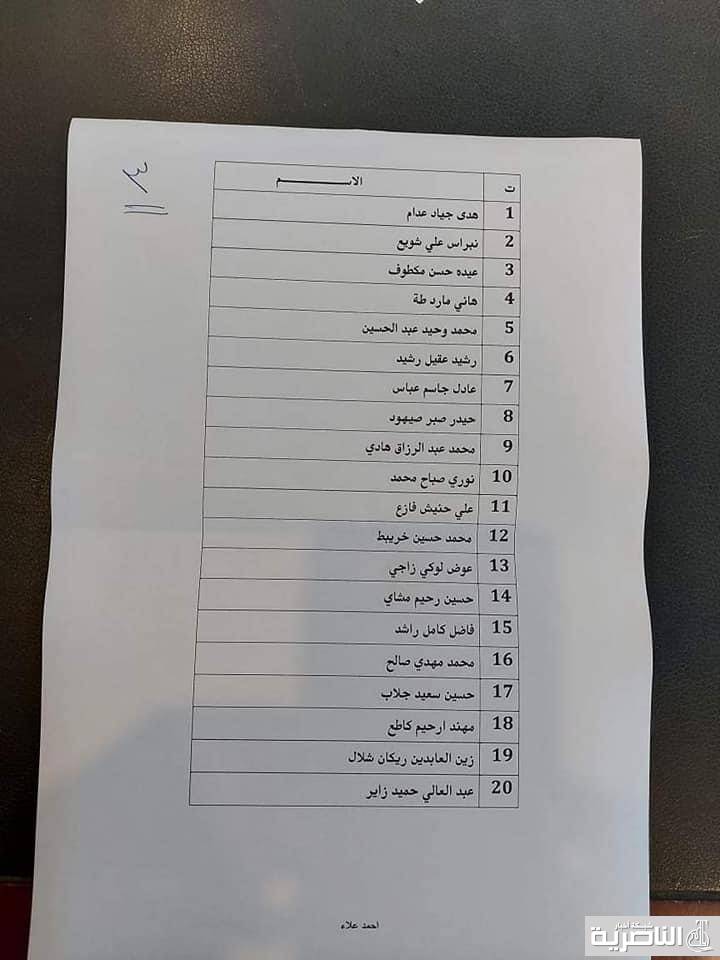 ٣
ت الاســـــــم
1 هدى جياد عدام
2 نبراس علي شويع
3 عيده حسن مكطوف
4 هاني مارد طة
5 محمد وحيد عبد الحسين
6 رشيد عقيل رشيد
7 عادل جاسم عباس
8 حيدر صبر صيهود
9 محمد عبد الرزاق هادي
10 نوري صباح محمد
11 علي حنيش فازع
12 محمد حسين خريبط
13 عوض لوكي زاجي
14 حسين رحيم مشاي
15 فاضل كامل راشد
16 محمد مهدي صالح
17 حسين سعيد جلاب
18 مهند ارحيم كاطع
19 زين العابدين ريكان شلال
20 عبد العالي حميد زاير
احمد علاء
شبكة اخبار
الناصرية